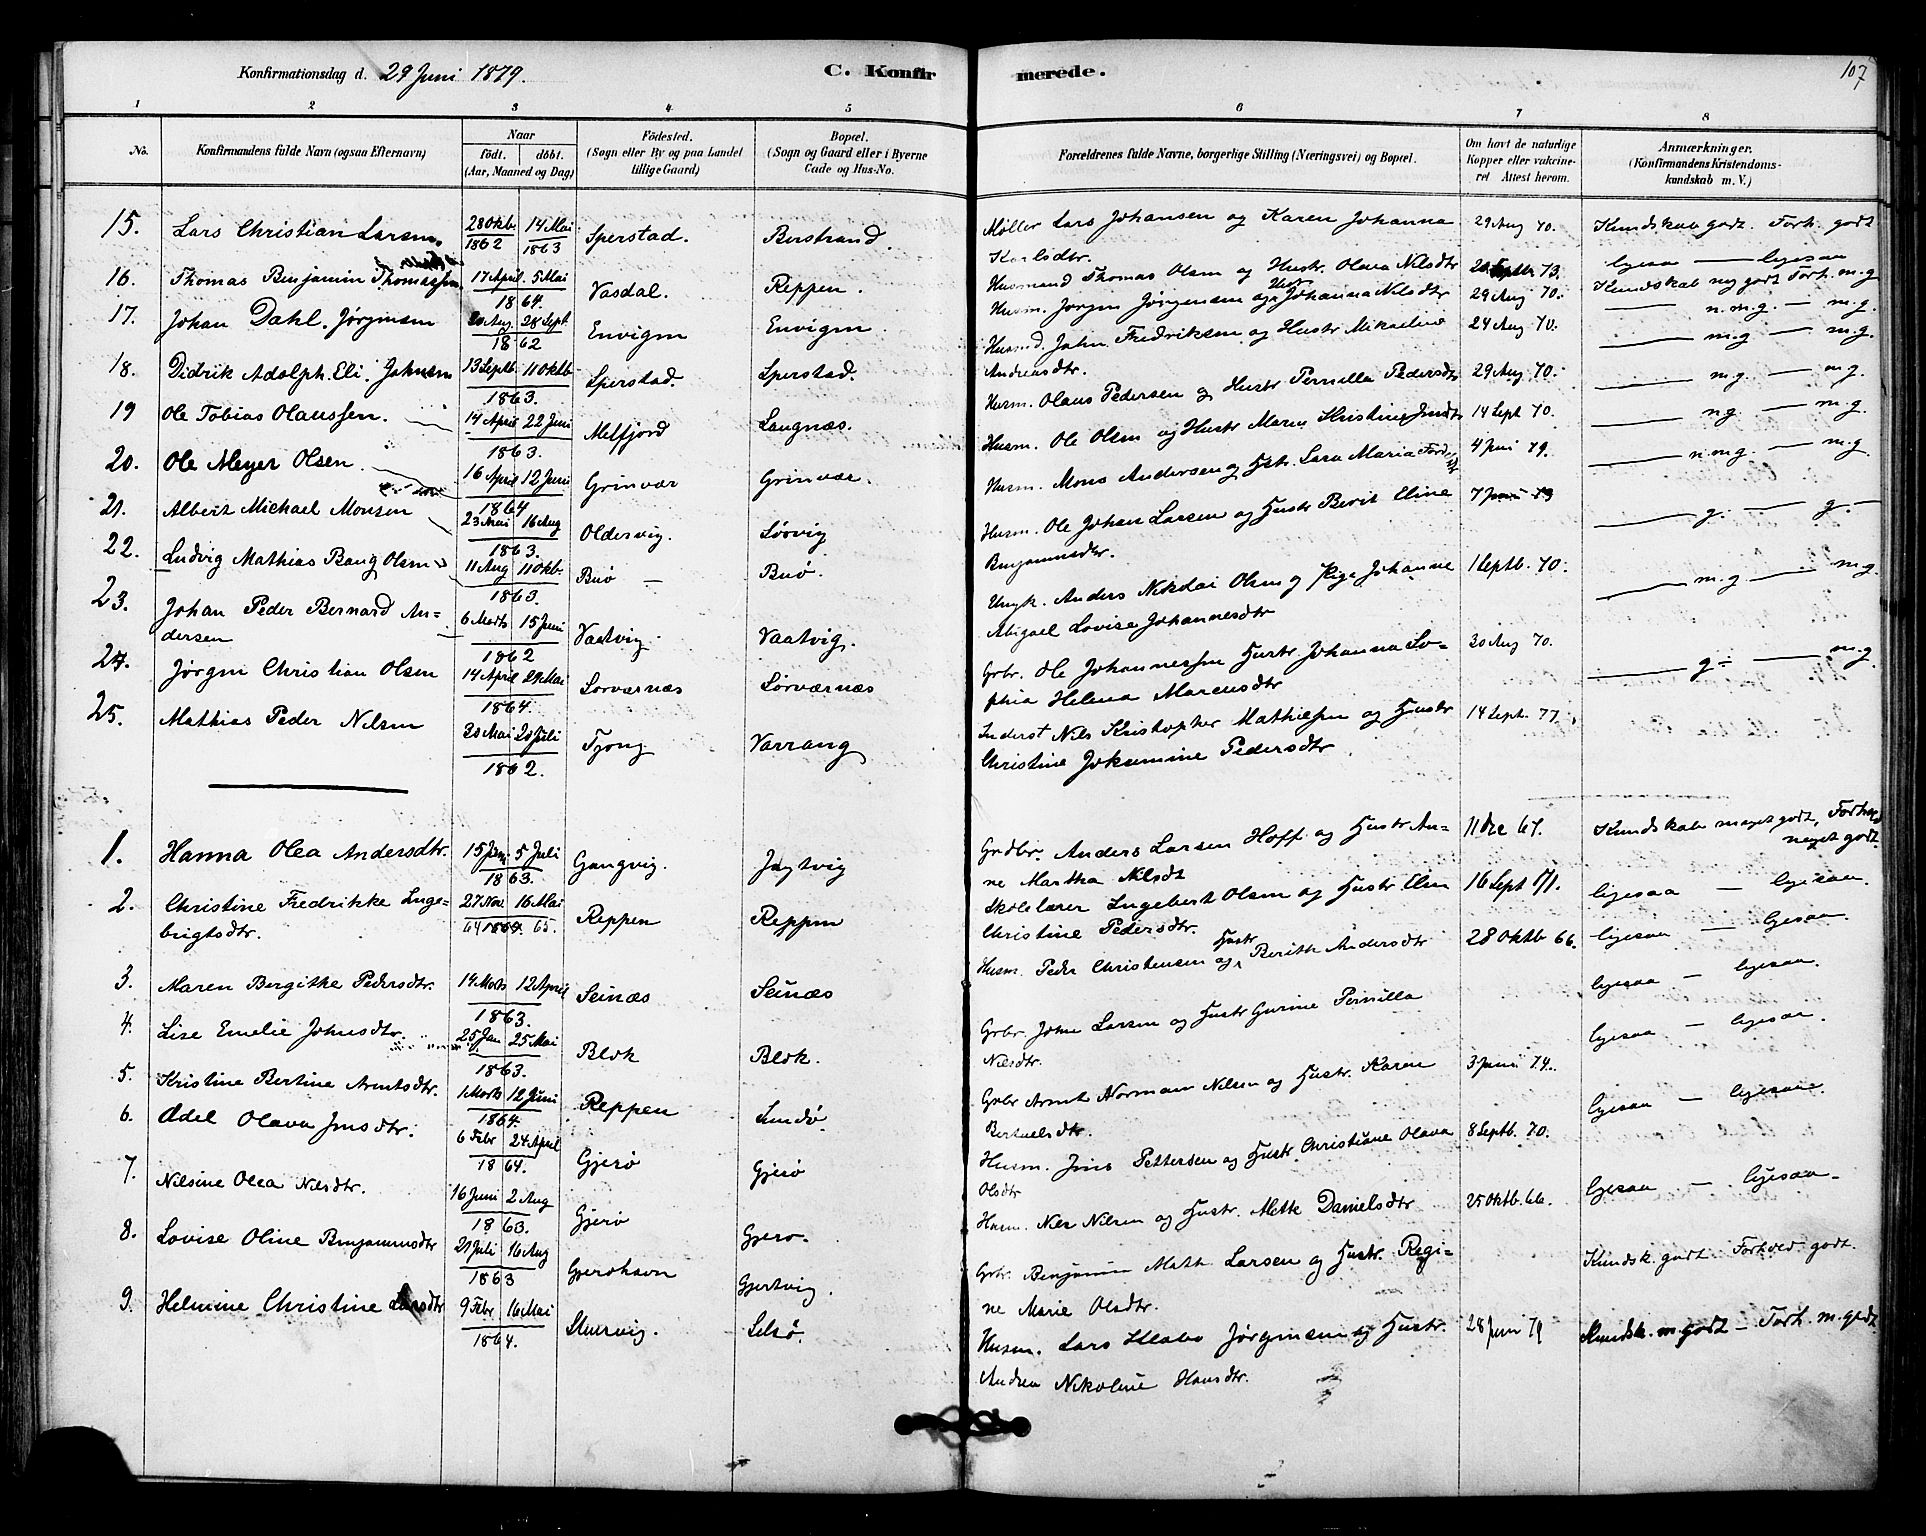 Konfirmationsdag d. 29 Juni 1879.
C. Konfirmerede.
107
1 2 3 4 5 6 7 8
No.
Konfirmandens fulde Navn (ogsaa Efternavn)
Naar
födt. döbt.
(Aar, Maaned og Dag)
Födested.
(Sogn eller By og paa Landet
tillige Gaard)
Bopæl.
(Sogn og Gaard eller i Byerne
Gade og Hus-No.
Forældrenes fulde Navne, borgerlige Stilling (Næringsvei) og Bopæl.
Om havt de naturlige
Kopper eller vakcine-
ret Attest herom.
Anmærkninger.
(Konfirmandens Kristendoms-
kundskab m. V.)
15. Lars Christian Larsen. 28 Oktb. 1862 14 Mai 1863 Sperstad. Berstrand. Møller Lars Johansen og Karen Johanna 29 Aug 70. Kundskab godt. Forh. godt
Karlsdtr.
16. Thomas Benjamin Thomassen 17 April 5 Mai 1864. Vasdal. Reppen. Husmand Thomas Olsen og Hustr. Olava Nilsdtr 73. ligesaa — ligesaa
17. Johan Dahl. Jørgensen 20 Aug. 28 Sept 1862 Envigen Envigen. Husm. Jørgen Jørgensen og Hustr Johanna Nilsdtr 29 Aug 70. Kundskab meg godt Forh. m.g
18. Didrik Adolph. Eli. Johnsen 13 Septb. 11 Oktb 1863. Sperstad. Sperstad. Husmd. John Fredriksen og Hustr Mikaeline 24 Aug 70. — n.m.g. — m.g.
Andreasdtr. — m.g — m.g.
19 Ole Tobias Olaussen. 14 April 22 Juni 1863. Melfjord Langnæs. Husm. Olaus Pedersen og Hustr Pernilla Pedersdtr 29 Aug 70. — m.g — m.g.
20. Ole Meyer Olsen. 16 April 12 Juni 1864 Grinvær Grinvær. Husm. Ole Olsen og Hustr Maren Kristine Jensdtr 14 Sept 70. — ng. — m.g.
21. Albert Michael Monsen 23 Mai 16 Aug 1863. Oldervig. Sørvig Husm. Mons Andersen og Hstr. Lara Maria 4 Juni 79. — n.mg. — m.g
22. Ludvig Mathias Bang Olsen 11 Aug 11 Oktb. 1863. Buø — Buø. Husm. Ole Johan Larsen og Hustr Berit Eline 7 Juni 79 — g. — g. —
Benjaminsdtr.
23. Johan Peder Bernard An-
dersen 6 Marts 15 Juni 1862 Vaatvig. Vaatvig. Ungk. Anders Nikolai Olsen og Pige Johanne 1 Septb. 70. — m.g — m.g.
Abigael Lovise Johannesdtr
24. Jørgen Christian Olsen 14 April 29 Mai 1864. Sørværnæs Sørværnæs Grbr. Ole Johannessen Hustr Johanna So- 30 Aug 70. — g. — m.g
phia Helena Marcusdtr
25. Mathias Peder Nilsen 20 Juli 1862. Tjong Varrang Inderst Nils Kristopher Mathiesen og Hustr 14 Sept. 77.
Christine Joksumine Pedersdtr
1. Hanna Olea Andersdtr. 15 Juni 5 Juli 1863. Gangvig. Jagtvig Grdbr. Anders Larsen Hoff og Hustr An- 11 Dec 67. Kundskab meget godt, Forh.
ne Martha Nilsdt meget godt
2. Christine Fredrikke Inge-
brigtsdtr. 27 Nov 16 Mai 64 1864. 65. Reppen Reppen Skolelærer Ingebert Olsen og Hustr Elen 16 Sept 71. ligesaa — ligesaa
Christine Pedersdtr.
3. Maren Bergitke Pedersdtr. 14 Marts 12 April 1863. Seinæs Seinæs Husm. Peder Christensen og Hustr Berith Andersdtr 28 Oktb 66. ligesaa — ligesaa
4. Lise Emelie Johnsdtr. 25 Jan 25 Mai 1863. Blok Blok. Grbr John Larsen og Hustr Gurine Pernilla ligesaa — ligesaa.
Nilsdtr.
5. Kristine Bertine Arntsdtr. 1 Marts 12 Juni 1864. Reppen Sundø. Grbr Arnt Normann Nilsen og Hustr. Karen 3 Juni 74. ligesaa — ligesaa.
Bertuelsdtr.
6. Adel Olava Jensdtr. 6 Febr 24 April 1864. Gjerø Gjerø Husm. Jens Pettersen og Hustr. Christiane Olava 8 Septb. 70. ligesaa — ligesaa.
Olsdtr
7. Nilsine Olea Nilsdtr. 16 Juni 2 Aug 1863. Gjerø Gjerø. Husm. Nils Nilsen og Hustr. Mette Danielsdtr 25 Oktb. 66. ligesaa — ligesaa —
8. Lovise Oline Benjaminsdtr 21 Juli 16 Aug 1863 Gjerøhavn Gjertvig. Grbr. Benjamin Math Larsen og Hustr. Regi- Kundsk. godt. Forhold. godt.
ne Marie Olsdtr.
9. Helmine Christine Larsdtr 9 Febr 16 Mai 1864. Stuervig. Selsø. Husm. Lars Jørgensen og Hustr. 28 Juni 79 Kundsk. m. godt — Forh. m. godt
Andrea Nikoline Hansdtr.